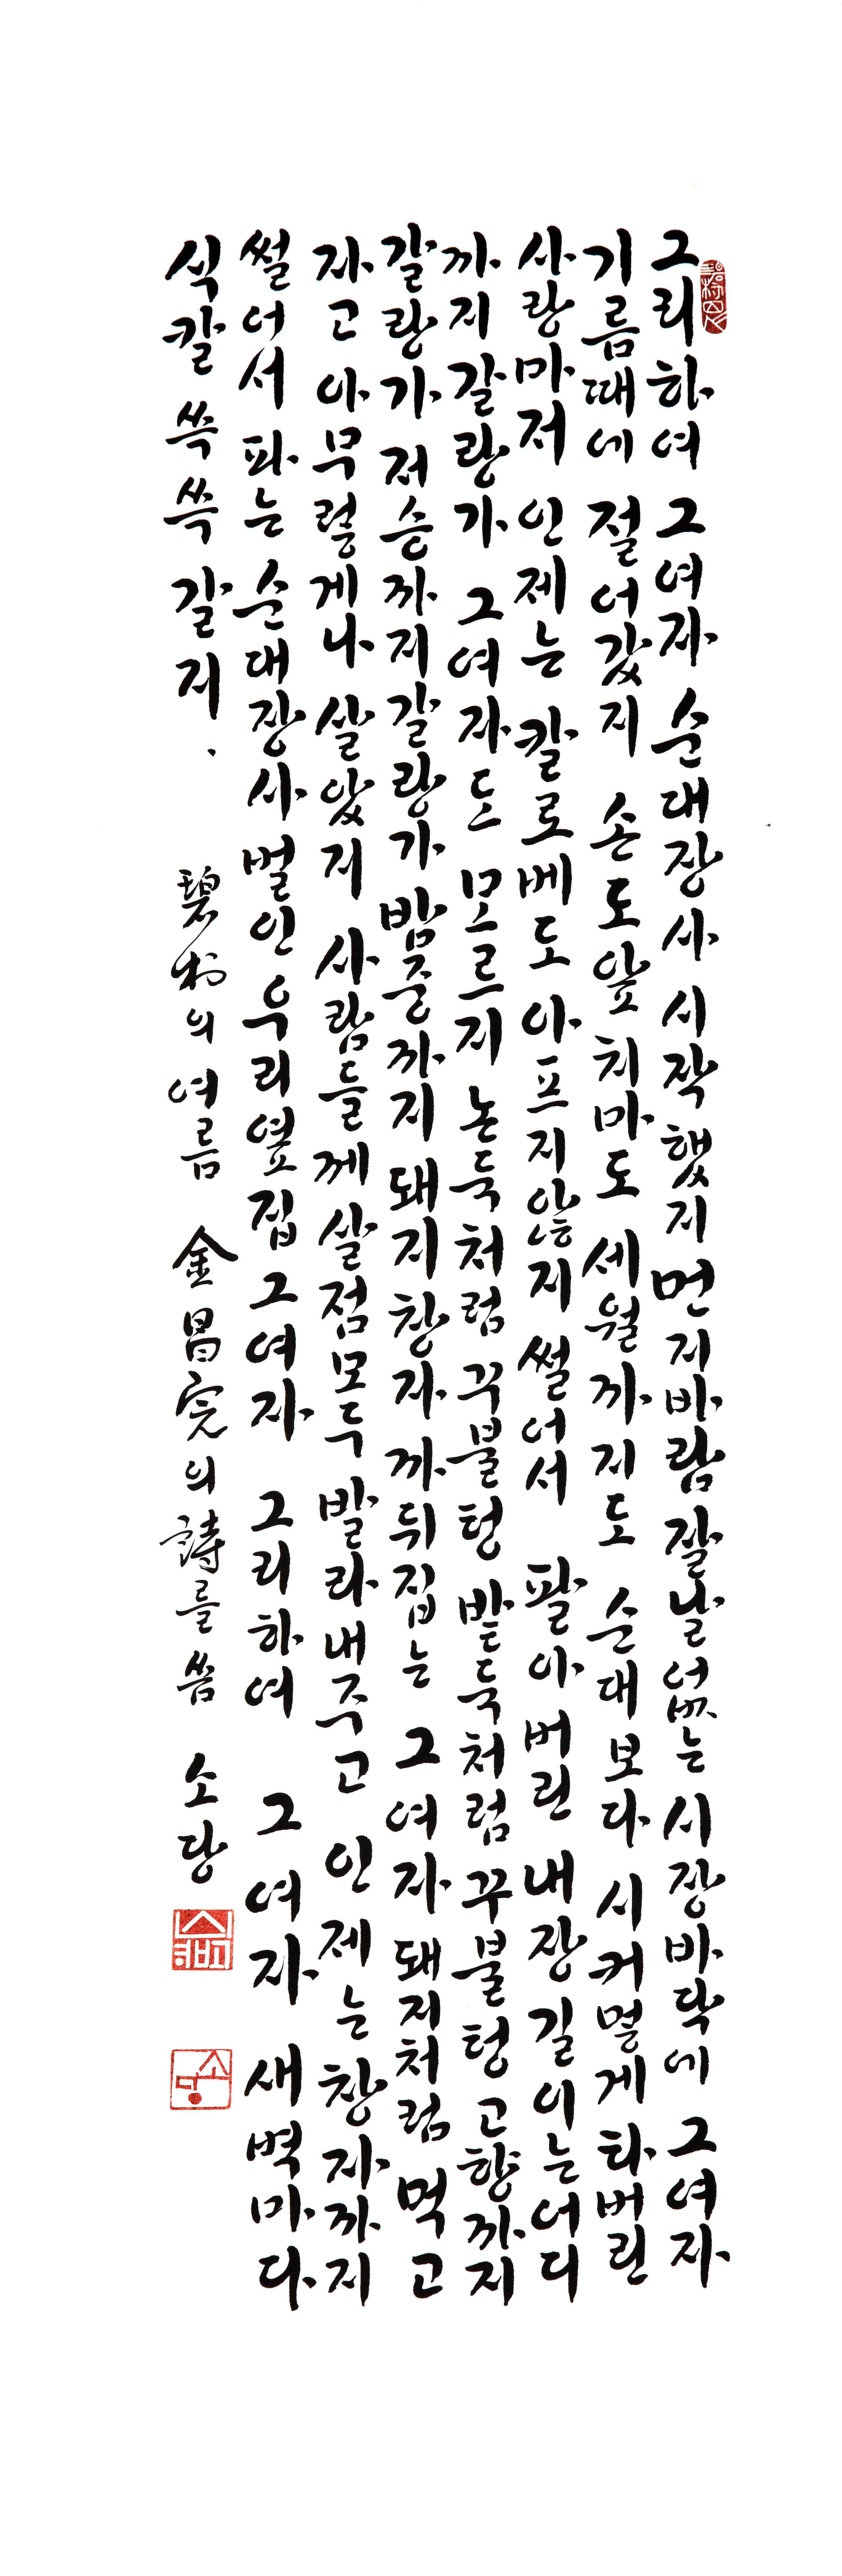 그리하여 그 여자 순대장사 시작했지 먼지바람 잘날 없는 시장바닥에 그 여자
기름때에 절어갔지 손도 앞치마도 세월까지도 순대보다 시커멓게 타버린
사랑마저 인제는 칼로 베도 아프지 않지 썰어서 팔아버린 내장 길이는 어디
까지 갈랑가 그 여자도 모르지 논둑처럼 꾸불텅 밭둑처럼 꾸불텅 고향까지
갈랑가 저승까지 갈랑가 밤중까지 돼지창자 까뒤집는 그 여자 돼지처럼 먹고
자고 아무렇게나 살았지 사람들께 살점 모두 발라내주고 인제는 창자까지
썰어서 파는 순대장사 벌인 우리 옆집 그 여자 그리하여 그 여자 새벽마다
식칼 쓱쓱 갈지.
碧村의 여름 金昌完의 詩를 씀 소당
소당